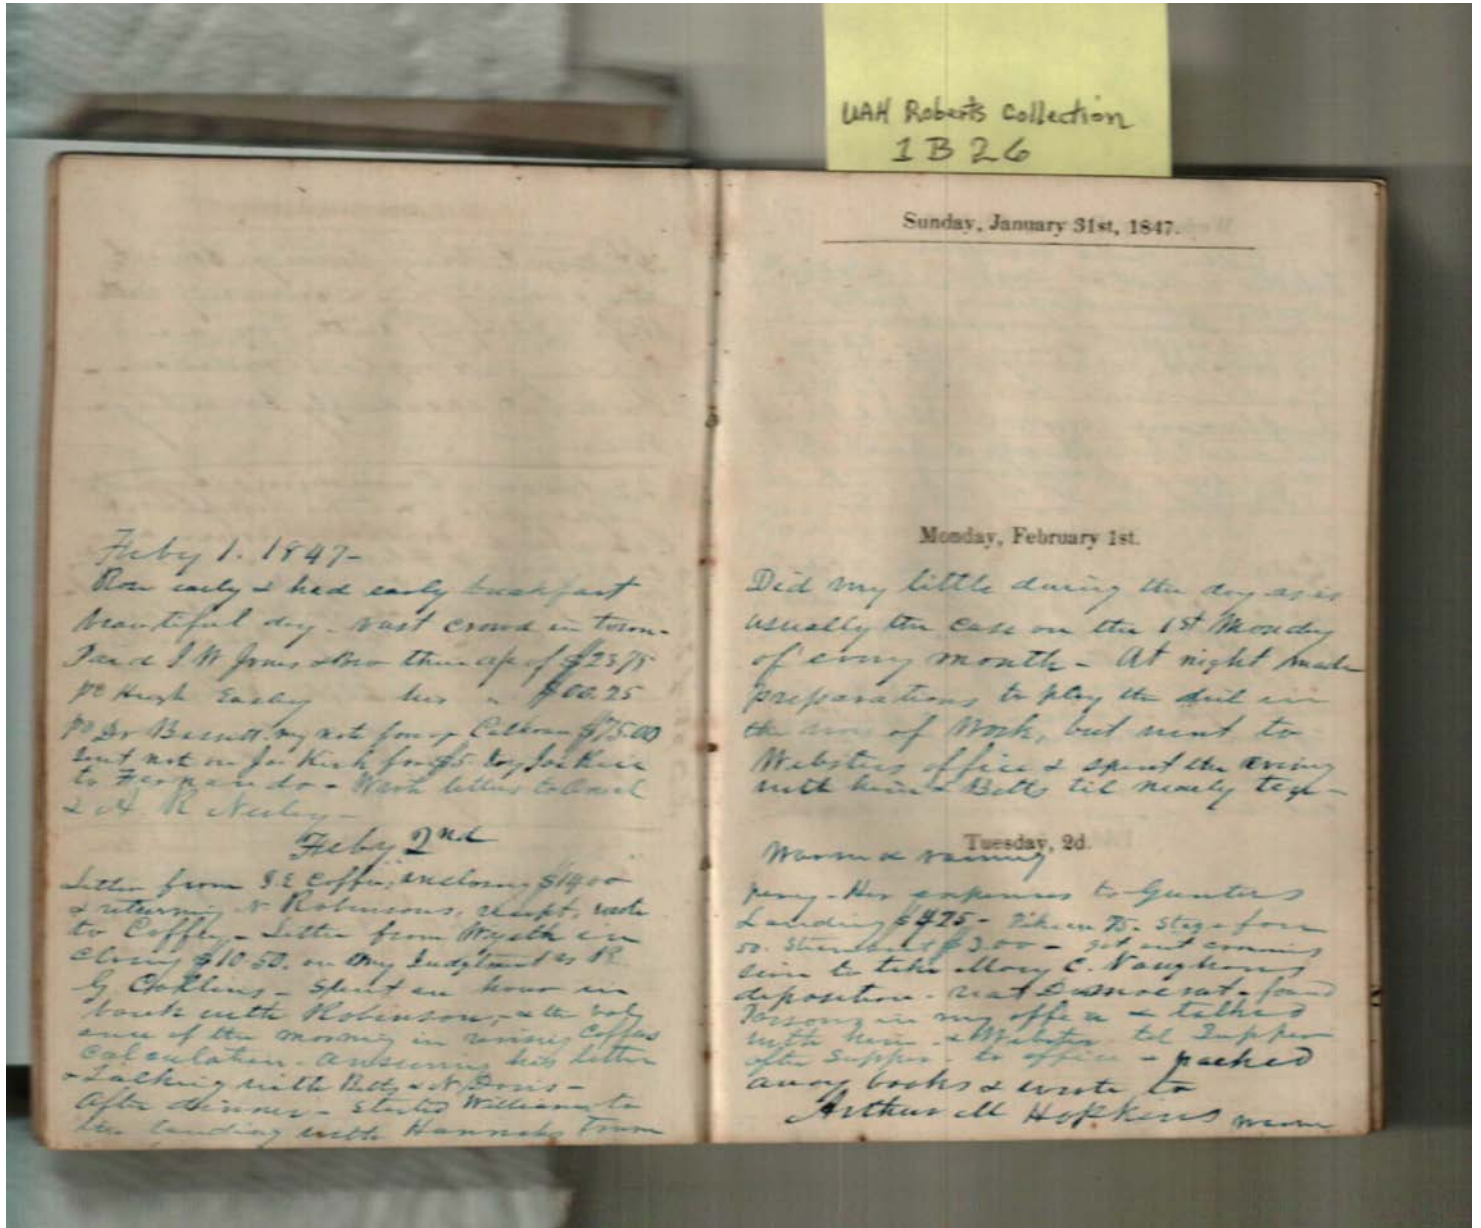 UAH Roberts Collection
1B26
Feby 1. 1847-
Rose early & had early breakfast
beautiful day - vast crowd in town-
Paid J W Jones & Bro their a/c of $23 75
pd Hugh Easley his " $00.25
pd Dr Bassett my not for Calhoun $75.00
not on Jo Kirk for $5
to Fernando - letters to
& A. R
Feby 2nd
Letter from J. E Coffey, enclosing $1400
& returning N Robinsons, receipt, wrote
to Coffey - Letter from Wyeth in
closing $10 50. on my Judgtment vs R.
G Collins - Spent an hour in
bank with Robinson, & the bal
ance of the morning in Coffeys
calculation - answering his letter
& Talking with Betts & N Davis -
After dinner - started William to
the landing with Hannah's
Sunday, January 31st, 1847.
Monday, February 1st.
Did very little during the day as is
usually the case on the 1st Monday
of every month - At night made
preparations to play the devil in
the way of Work, but went to
Websters office & spent the evening
with him & Betts til nearly
Tuesday, 2d.
Warm & raining
Her expenses to Gunters
Landing $4 75 - 75. Stage fare
50. Steamboat $3.00 - got out commis
sion to take Mary C. Vaughans
deposition - Democrat - found
in my office & talked
with him & Webster til Supper
after Supper - to office - packed
away books & wrote to
Arthur M Hopkins warm